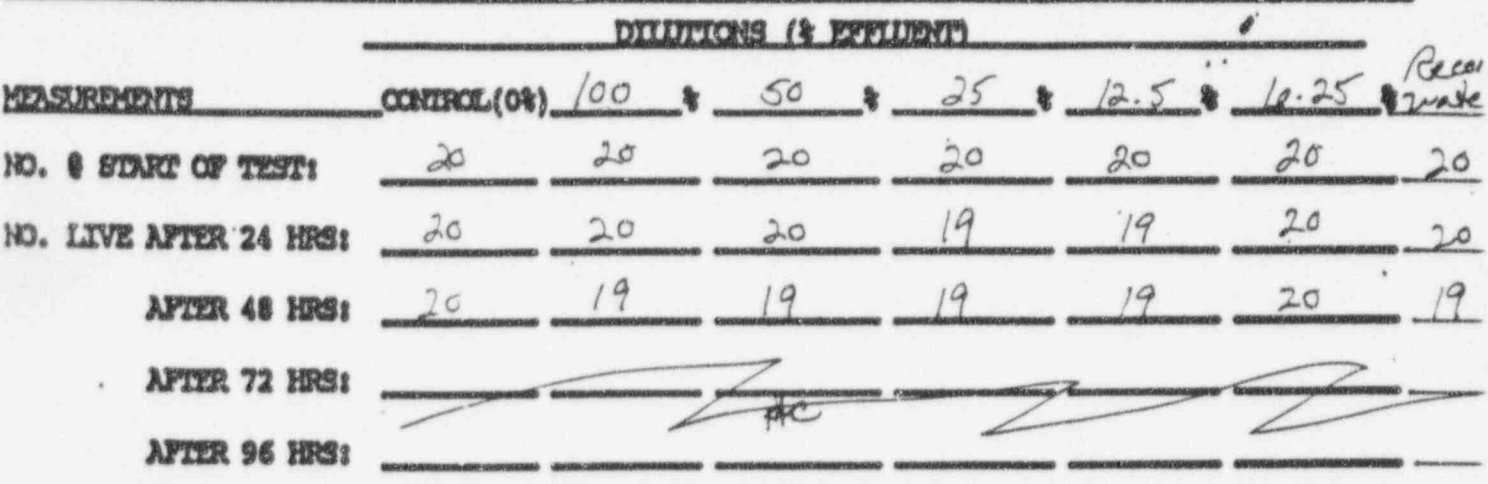 DILUTIONS (% EFFLUENT)
MEASUREMENTS CONTROL(0%) 100 % 50 % 25 % 12.5 % 6.25 % Recon
NO. @ START OF TEST: 20 20 20 20 20 20 20
NO. LIVE AFTER 24 HRS: 20 20 20 19 19 20 20
AFTER 48 HRS: 20 19 19 19 19 20 19
AFTER 72 HRS:
AFTER 96 HRS: